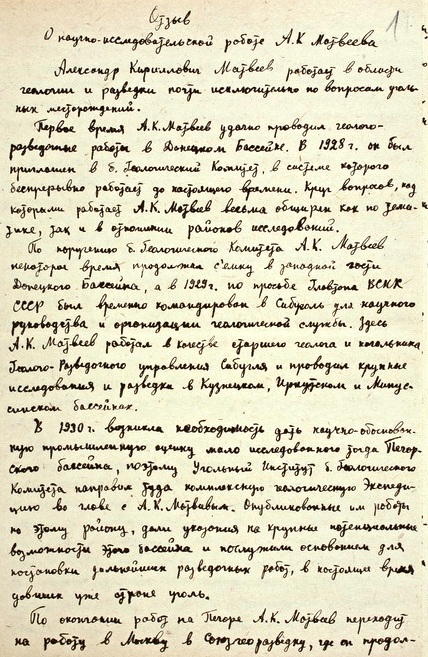 Отзыв
1
О научно-исследовательской работе А.К Матвеева
Александр Кириллович Матвеев работает в области
геологии и разведки почти исключительно по вопросам уголь-
ных месторождений.
Первое время А.К.Матвеев удачно проводил геолого-
разведочные работы в Донецком Бассейне. В 1928г. он был
приглашен в б. Геологический Комитет, в системе которого
беспрерывно работает до настоящего времени. Круг вопросов, над
которыми работает А.К. Матвеев весьма обширен как по тема-
тике, так и в отношении районов исследований.
По поручению б. Геологического Комитета А.К. Матвеев
некоторое время, продолжал с'емку в западной части
Донецкого Бассейна, а в 1929г. по просьбе Главтопа ВСНХ
СССР был временно командирован в Сибуголь для научного
руководства и организации геологической службы. Здесь
А.К. Матвеев работал в качестве старшего геолога и начальника
Геолого-Разведочного управления Сибугля и проводил крупные
исследования и разведки в Кузнецком, Иркутском и Минус-
синском бассейнах.
В 1930г. возникла необходимость дать научно-обоснован-
ную промышленную оценку мало исследованного тогда Печор-
ского бассейна, поэтому Угольный Институт б. Геологического
Комитета направил туда комплексную геологическую Экспеди-
цию во главе с А.К. Матвевим. Опубликованные им работы
по этому району, дали указания на крупные потенциальные
возможности этого бассейна и послужили основанием для
постановки дальнейших разведочных работ, в настоящее время
давших уже стране уголь.
По окончании работ на Печоре А.К. Матвеев переходит
на работу в Москву в Союзгеоразведку, где он продол-